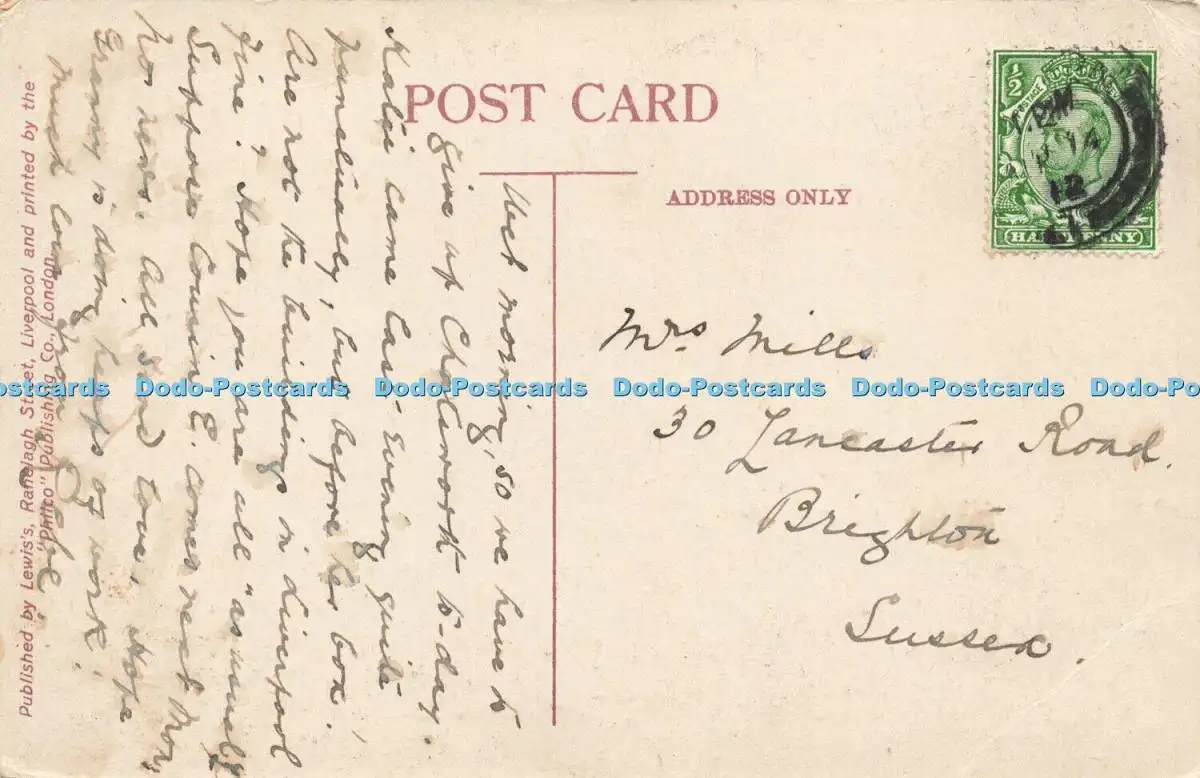 POST CARD
ADDRESS ONLY
½
POSTAGE
HALFPENNY
PM
14
12
Mrs Mills
30 Lancaster Road.
Brighton
Sussex.
Wet morning, so we have to
give up Chatsworth to-day.
Katie came last evening quite
punctually, but before her box!
Are not the buildings in Liverpool
fine? Hope you are all "as usual".
Suppose Cousin E. comes next Mon,
No news. All send love, Hope
Granny is doing heaps of work!
Much love from
Published by Lewis's, Ranelagh Street, Liverpool and printed by the
"Philco" Publishing Co., London.
Dodo-Postcards Dodo-Postcards Dodo-Postcards Dodo-Postcards Dodo-Postcards